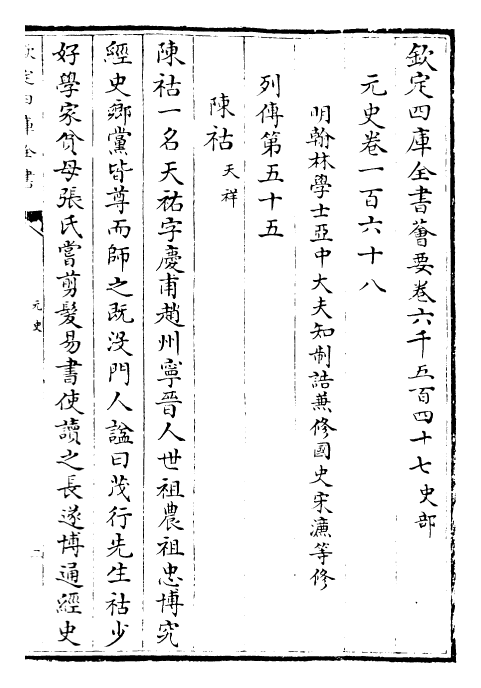 欽定四庫全書薈要卷六千五百四十七史部
元史卷一百六十八
明翰林學士亞中大夫知制誥兼修國史宋濂等修
列傳第五十五
陳祜 天祥
陳祜一名天祐字慶甫趙州寧晉人世祖農祖忠博究
經史鄉黨皆尊而師之既没門人諡曰茂行先生祜少
好學家貧母張氏嘗剪髮易書使讀之長遂博通經史
欽定四庫全書
元史
一